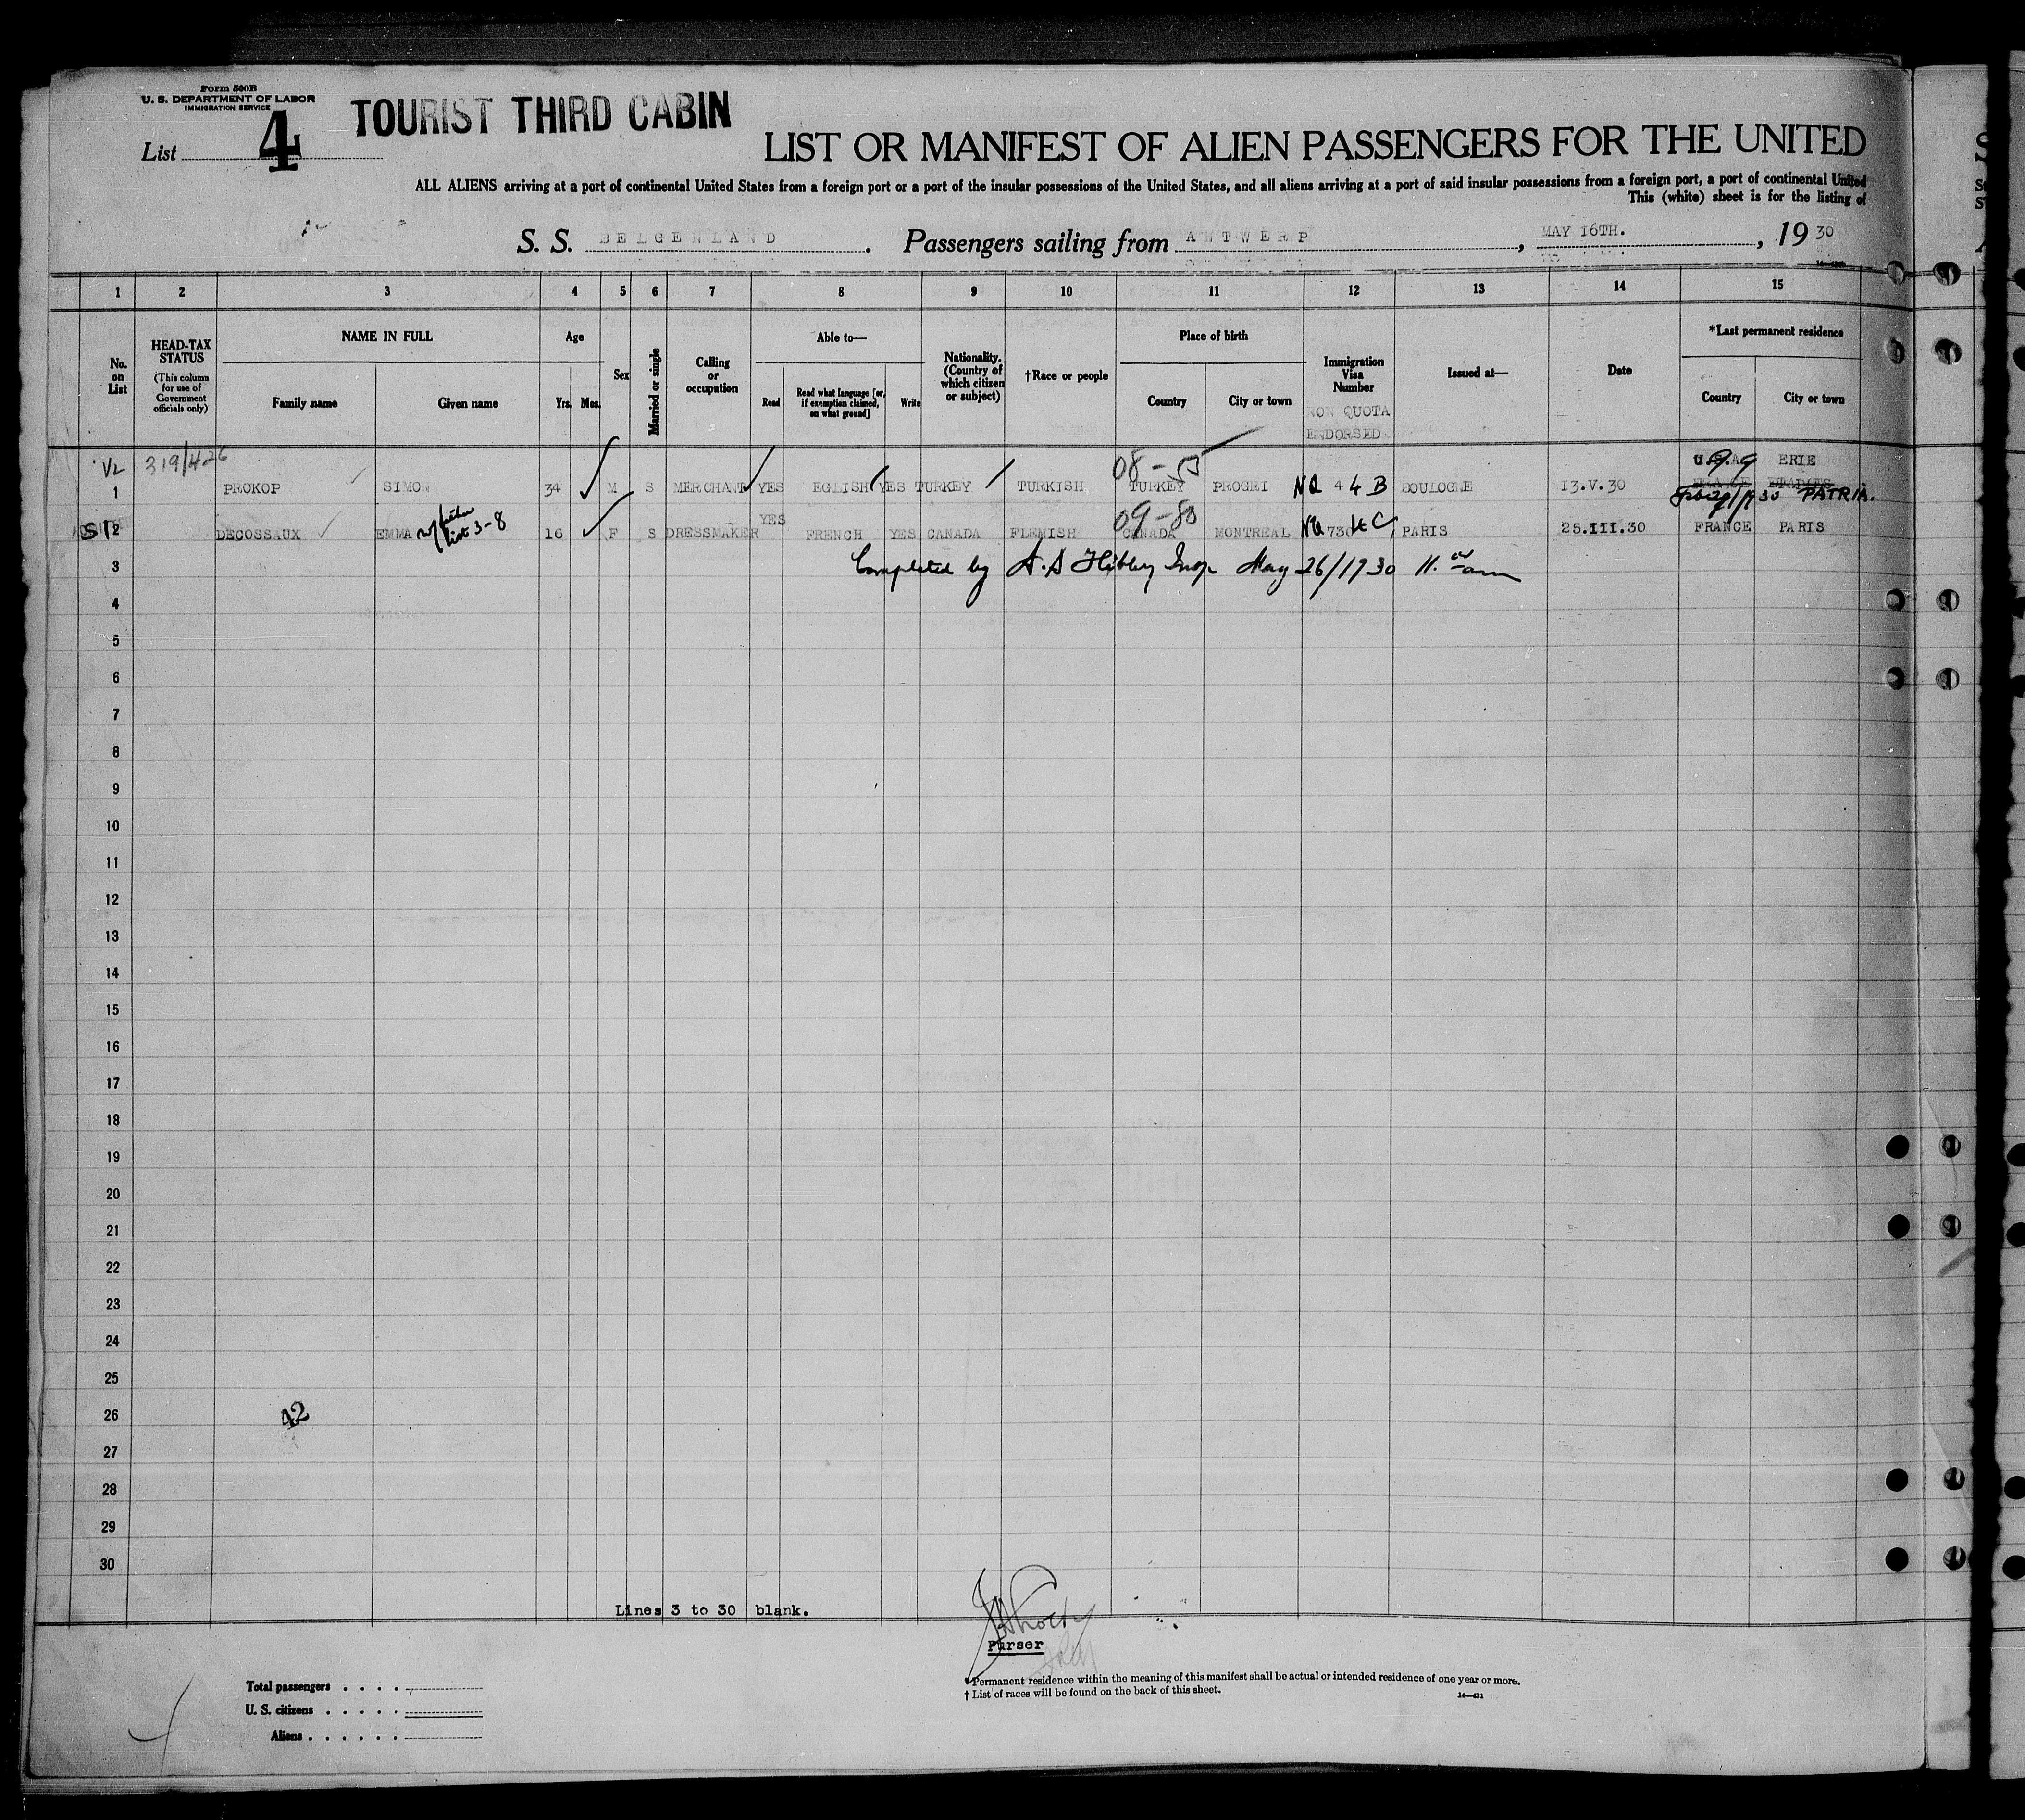 Form 500B
U. S. DEPARTMENT OF LABOR
IMMIGRATION SERVICE
List 4
TOURIST THIRD CABIN
LIST OR MANIFEST OF ALIEN PASSENGERS FOR THE UNITED
ALL ALIENS arriving at a port of continental United States from a foreign port or a port of the insular possessions of the United States, and all aliens arriving at a port of said insular possessions from a foreign port, a port of continental United
This (white) sheet is for the listing of
S. S. BELGENLAND. Passengers sailing from ANTWERP, MAY 16TH., 19 30
1 2 3 4 5 6 7 8 9 10 11 12 13 14 15
No. on List
HEAD-TAX STATUS
(This column for use of Government officials only)
NAME IN FULL
Family name Given name
Age
Yrs. Mos.
Sex
Married or single
Calling or occupation
Able to—
Read Read what language [or, if exemption claimed, on what ground] Write
Nationality. (Country of which citizen or subject)
†Race or people
Place of birth
Country City or town
Immigration Visa Number
NON QUOTA
ENDORSED
Issued at—
Date
*Last permanent residence
Country City or town
319/426 08- U.S.A. ERIE
1 PROKOP SIMON 34 M S MERCHANT YES EGLISH YES TURKEY TURKISH TURKEY PROGRI NQ 4 4 B BOULOGNE 13.V.30 FRANCE
30 PATRIA.
S1 2 DECOSSAUX EMMA w/ father List 3-8 16 F S DRESSMAKER YES FRENCH YES CANADA FLEMISH 09-80 CANADA MONTREAL NQ 730 4C PARIS 25.III.30 FRANCE PARIS
3 Completed by A. S Hibley Insp May 26/1930 11. am
4
5
6
7
8
9
10
11
12
13
14
15
16
17
18
19
20
21
22
23
24
25
26
42
27
28
29
30
Lines 3 to 30 blank.
Purser
Total passengers . . . .
U. S. citizens . . . . .
Aliens . . . . . .
* Permanent residence within the meaning of this manifest shall be actual or intended residence of one year or more.
† List of races will be found on the back of this sheet.
14—431